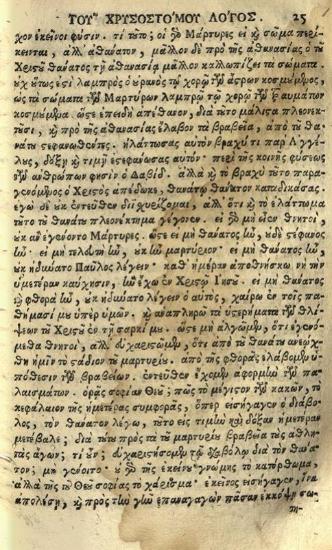 ΤΟΥ͂ ΧΡΥΣΟΣΤΟ΄ΜΟΥ ΛΟ΄ΓΟΣ. 25
χον ἐκεῖνοι φύσιν. τί τῦτο; οἱ γδ Μάρτυρες εἰ ϗ σῶμα περί-
κεινται, ἀλλ' ἀθάνατον, μᾶλλον δὲ πρὸ τῆς ἀθανασίας ὁ τῦ
Χειςῦ θάνατος τἢ ἀθανασίᾳ μᾶλλον καλλωπίζει τα σώματα.
ἐχ ὕτως ἐςὶ λαμπρὸς ὁ ὐρανὸς τῷ χορῷ τῶν ἄςρων κοσμύμενος,
ὡς τὰ σώματα τῶν Μαρτύρων λαμπρῷ τῷ χορῷ τῶν τραυμάτων
κοσμύμενα. ὥςε ἐπειδὴ ἀπέθανον, διὰ τῦτο μάλιςα πλεονεκ-
τῦσι, ϗ πρὸ τῆς ἀθανασίας ἔλαβον τὰ βραβεῖα, ἀπὸ τῦ θα-
νάτυ ςεφανωθέντες. ἠλάττωσας αὐτὸν βραχύ τι παρ' Ἀγγέ-
λυς, δόξῃ ϗ τιμῇ ἐςεφάνωσας αὐτὸν· περὶ τῆς κοινῆς φύσεως
τῶν ἀνθρώπων φησὶν ὁ Δαβίδ. ἀλλὰ ϗ τὸ βραχὺ τῦτο παρα-
γενόμενος ὁ Χριςὸς ἀπέδωκε, θανάτῳ θάνατον καταδικάσας.
ἐγὼ δὲ ὐκ ἐντεῦθεν διϊχυρίζομαι, ἀλλ' ὅτι ϗ τὸ ἐλάττωμα
τῦτο τῦ θανάτυ πλεονέκτημα γέγονεν. εἰ γδ μὴ ὦσι θνητοὶ,
ὐκ ἂν ἐγένοντο Μάρτυρες. ὥςε εἰ μὴ θάνατος ἦν, ὐδὲ ςέφανος
ἦν. εἰ μὴ τελευτὴ ἦν, ὐκ ἦν μαρτύριον· εἰ μὴ θάνατος ἦν,
ὐκ ἠδύνατο Παῦλος λέγειν· καθ' ἡμέραν ἀποθνήσκω νὴ τὴν
ὑμετέραν καύχησιν, ἣν ἔχω ἐν Χριςῷ Ἰησῦ. εἰ μὴ θάνατος
ϗ φθορὰ ἦν, ὐκ ἠδύνατο λέγειν ὁ αὐτὸς, χαίρω ἐν τοῖς πα-
θήμασί μυ ὑπὲρ ὑμῶν. ϗ ἀναπληρῶ τὰ ὑςερήματα τῶν θλί-
ψεων τῦ Χριςῦ ἐν τῇ σαρκί μυ. ὥςε μὴ ἀλγῶμεν, ὅτι ἐγενό-
μεθα θνητοὶ, ἀλλ' εὐχαριςῶμεν, ὅτι ἀπὸ τῦ θανάτυ ἀνεῴχ-
θη ἡμῖν τὸ ςάδιον τῦ μαρτυρίυ. ἀπὸ τῆς φθορᾶς ἐλάβομεν ὑ-
πόθεσιν τῶν βραβείων. ἐντεῦθεν ἔχομεν ἀφορμὴν τῶν πα-
λαισμάτων. ὁρᾷς σοφίαν Θεῦ; πῶς τὸ μέγιςον τῶν κακῶν, τὸ
κεφάλαιον τῆς ἡμετέρας συμφορᾶς, ὅπερ εἰσήγαγεν ὁ διάβο-
λος, τὸν θάνατον λέγω, τῦτο εἰς τιμὴν ϗ δόξαν ἡμετέραν
μετέβαλε; διὰ τύτυ πρὸς τὰ τῦ μαρτυρίυ βραβεῖα τὺς ἀθλη-
τὰς ἄγων; τί ὖν; εὐχαριςήσομεν τῷ διαβόλῳ διὰ τὸν θάνα-
τον; μὴ γένοιτο· ὐ γδ τῆς ἐκείνυ γνώμης τὸ κατόρθωμα,
ἀλλὰ τῆς τῦ Θεῦ σοφίας τὸ χάρισμα· ἐκεῖνος εἰσήγαγεν, ἵνα
ἀπολέσῃ, ϗ πρὸς τὴν γῆν ἐπαναγαγὼν πᾶσαν ἐκκόψῃ σω-
τη-